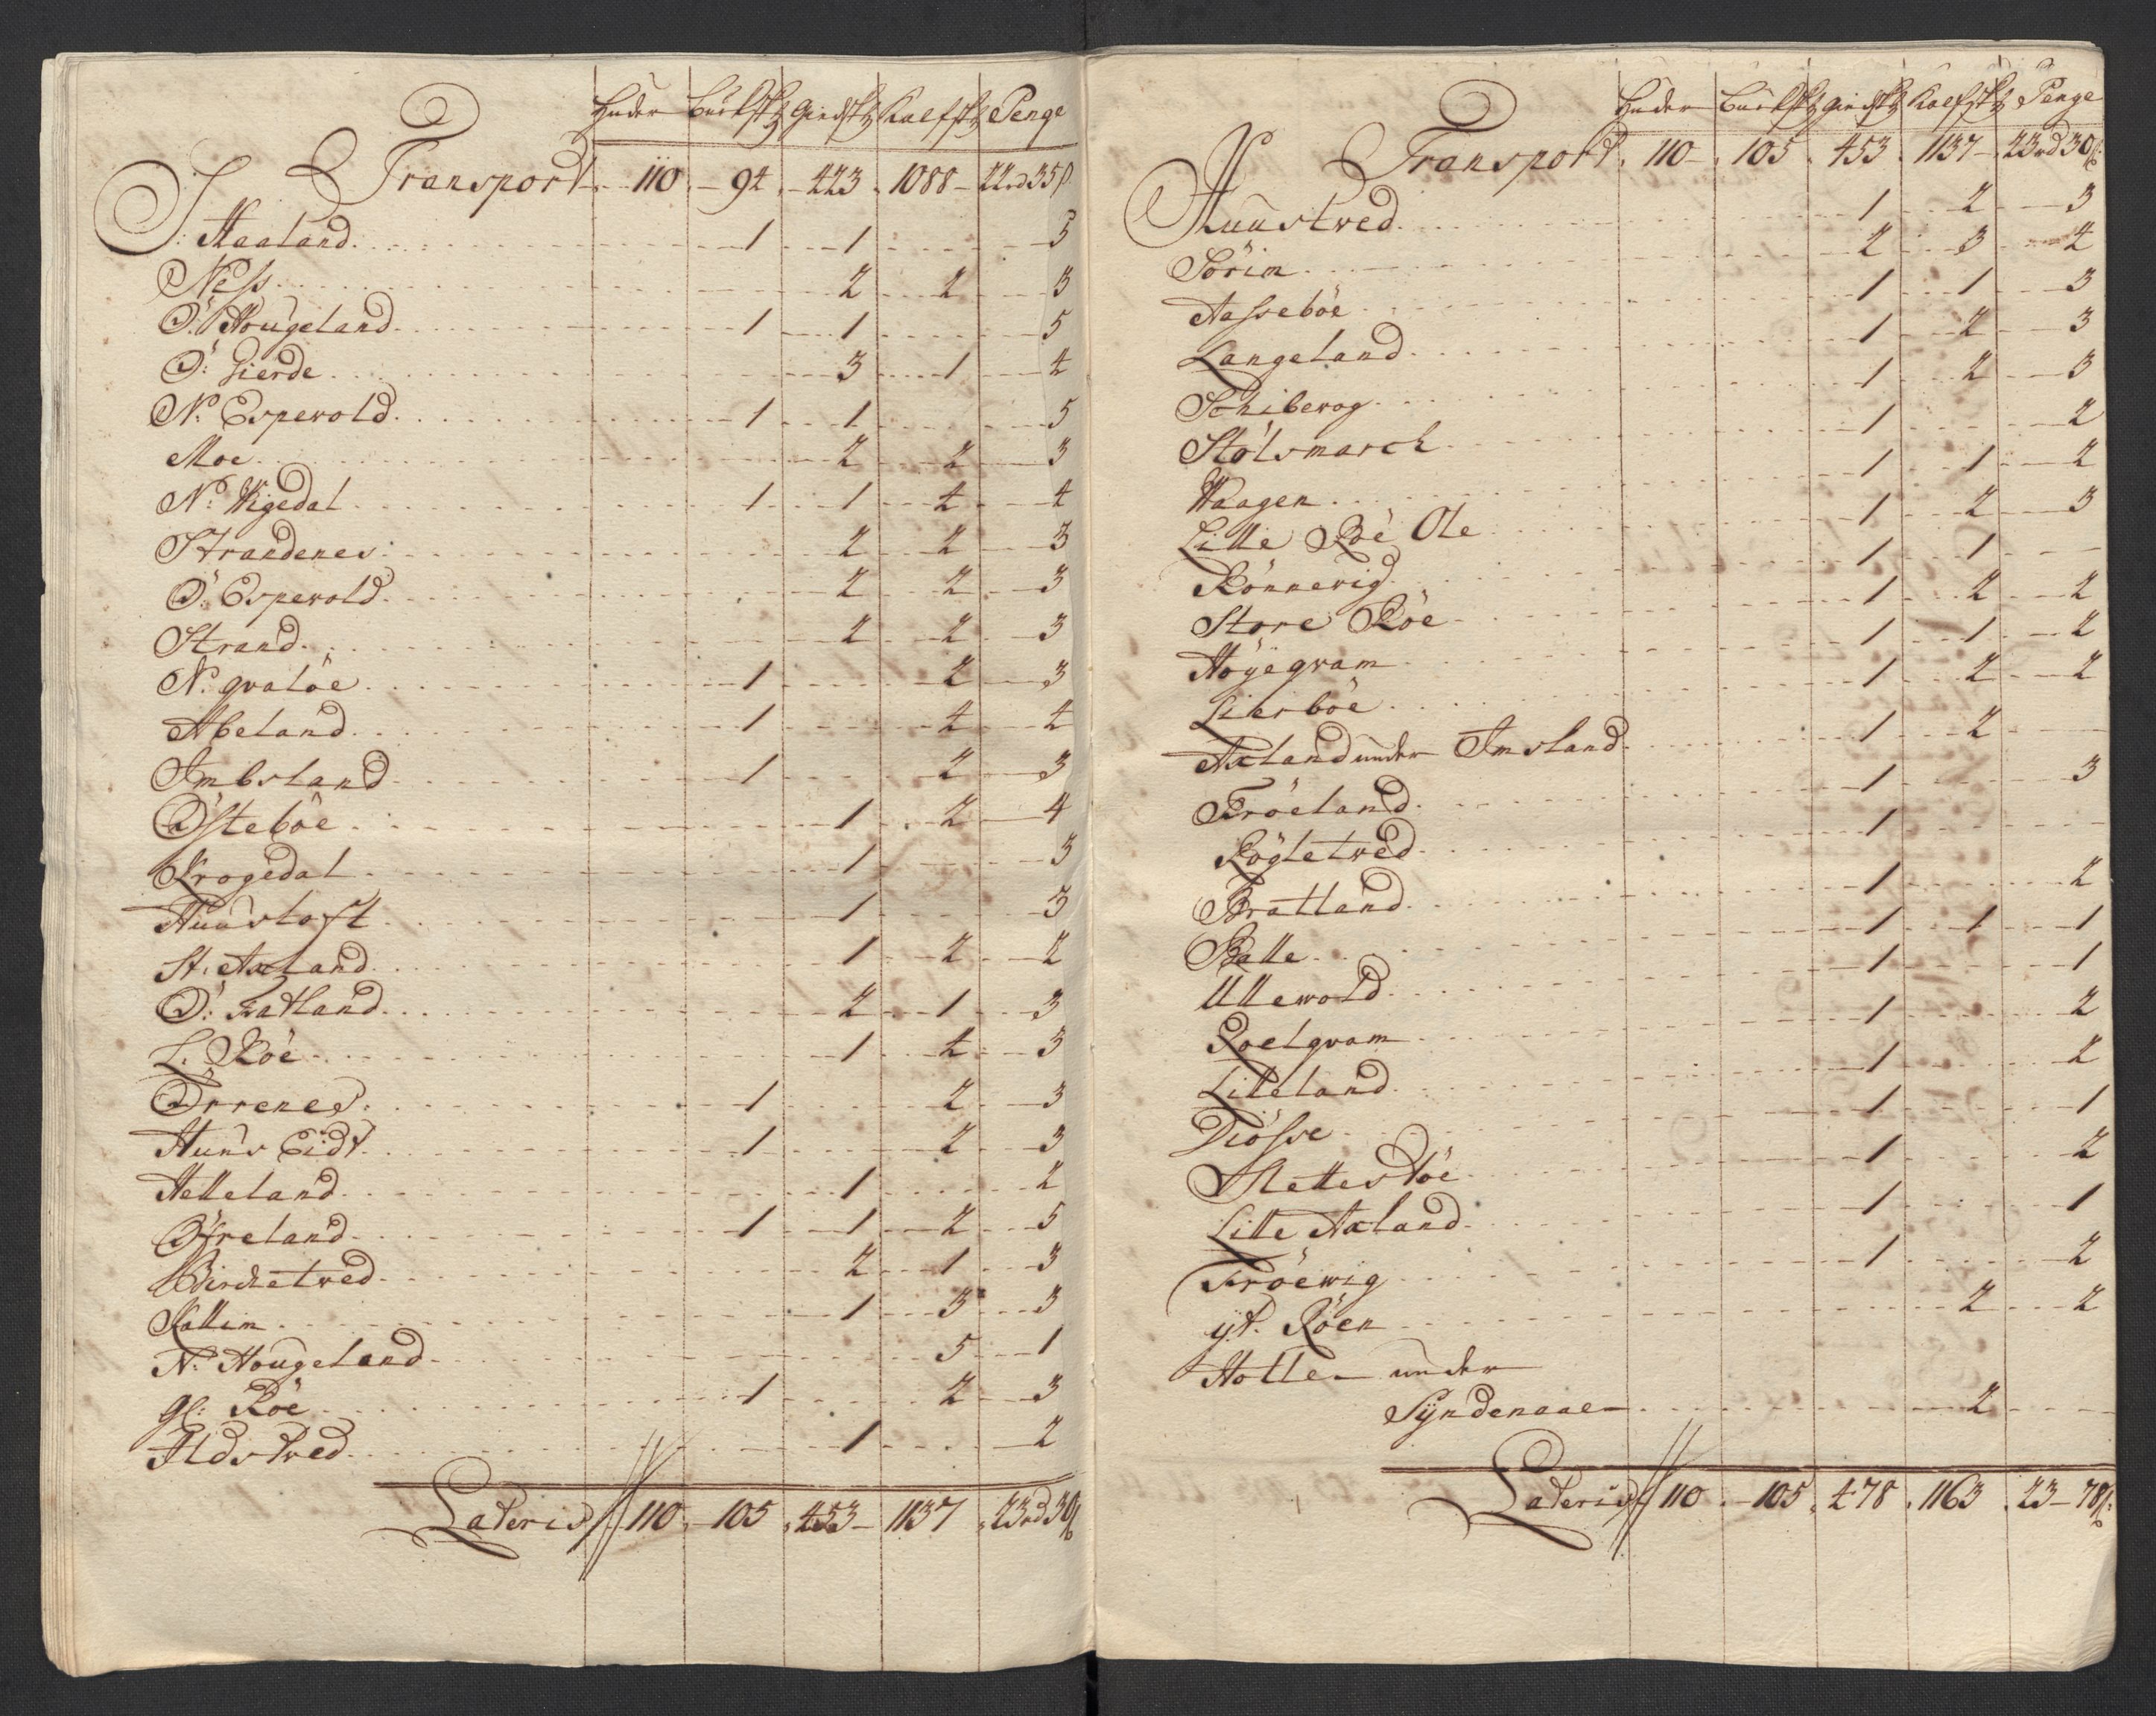 Huder Buckskd Giedskd Kalfskd Penge
Transport 110 94 423 1088 22rd 35ß
I: Haaland 1 1 5
Ness 2 2 3
Ö: Hougeland 1 1 5
Ö: Gierde 3 1 4
N: Espevold 1 1 5
Moe 2 2 3
N: Wigedal 1 1 4 4
Strandenes 2 2 3
Ö: Espevold 2 2 3
Strand 2 2 3
N: qvalöe 1 2 3
Abeland 1 4 4
Imbsland 1 2 3
Östeböe 1 2 4
Krogedal 1 3
Huustoft 1 3
St. Axland 1 2 2
Ö: Fatland 2 1 3
L. Röe 1 4 3
Örrenes 1 2 3
Huns Eidt 1 2 3
Helleland 1 2
Öfreland 1 1 2 5
Birchetved 2 1 3
Kallim 1 3 3
N: Hougeland 5 1
Gl: Röe 1 2 3
Ildstved 1 2
Lateris 110 105 453 1137 23rd 30ß

Huder Buckskd giedskd Kalfskd Penge
Transport 110 105 453 1137 23rd 30ß
Huustved 1 2 3
Sörim 2 3 4
Aasseböe 1 1 3
Langeland 1 2 3
Schibevog 1 2 3
Stölsmarch 1 2
Waagen 1 1 2
Lille Röe Ole 1 2 3
Rönnevig 1 1
Store Röe 1 2 2
Höÿeqvam 1 1 2
Lierböe 1 2 2
Axland under Imsland 1 2
Fröeland 1 3
Rögletved 1
Bratland 1 2
Balle 1 1 1
Ullevold 1 1
Roelqvam 1 2
Lilleland 1 2
Diösse 1 1
Slettestöe 1 2
Lille Axland 1 1
Fröewig 1 2
ÿt. Röen 2 2
Holle under
Sÿndenaae 2
Lateris 110 105 478 1163 23 - 78ß